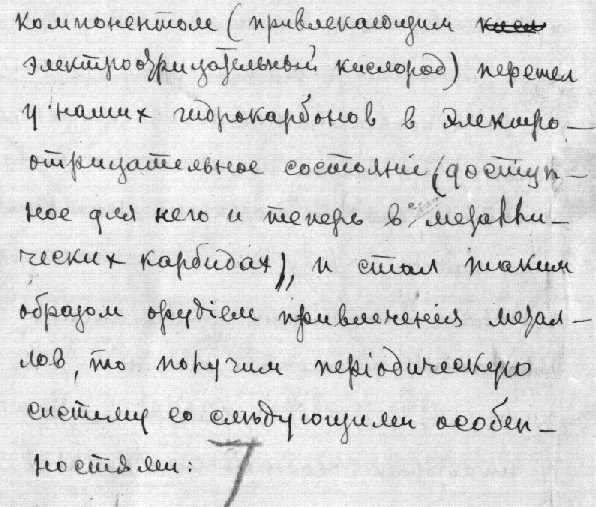 компонентом (привлекающим
электроотрицательный кислород) перешел
у наших гидрокарбонов в электро-
отрицательное состояніе (доступ-
ное для него и теперь в металли-
ческих карбидах), и стал таким
образом орудіем привлеченія метал-
лов, то получим періодическую
систему со слѣдующими особен-
ностями: